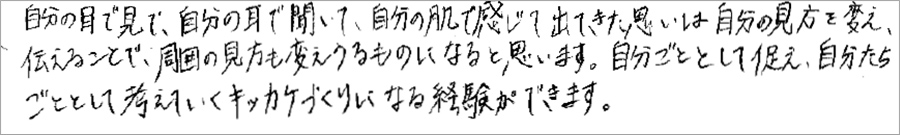 自分の目で見て、自分の耳で聞いて、自分の肌で感じて出てきた思いは自分の見方を変え、
伝えることで、周囲の見方も変えうるものになると思います。自分ごととして促え、自分たち
ごととして考えていくキッカケづくりになる経験ができます。